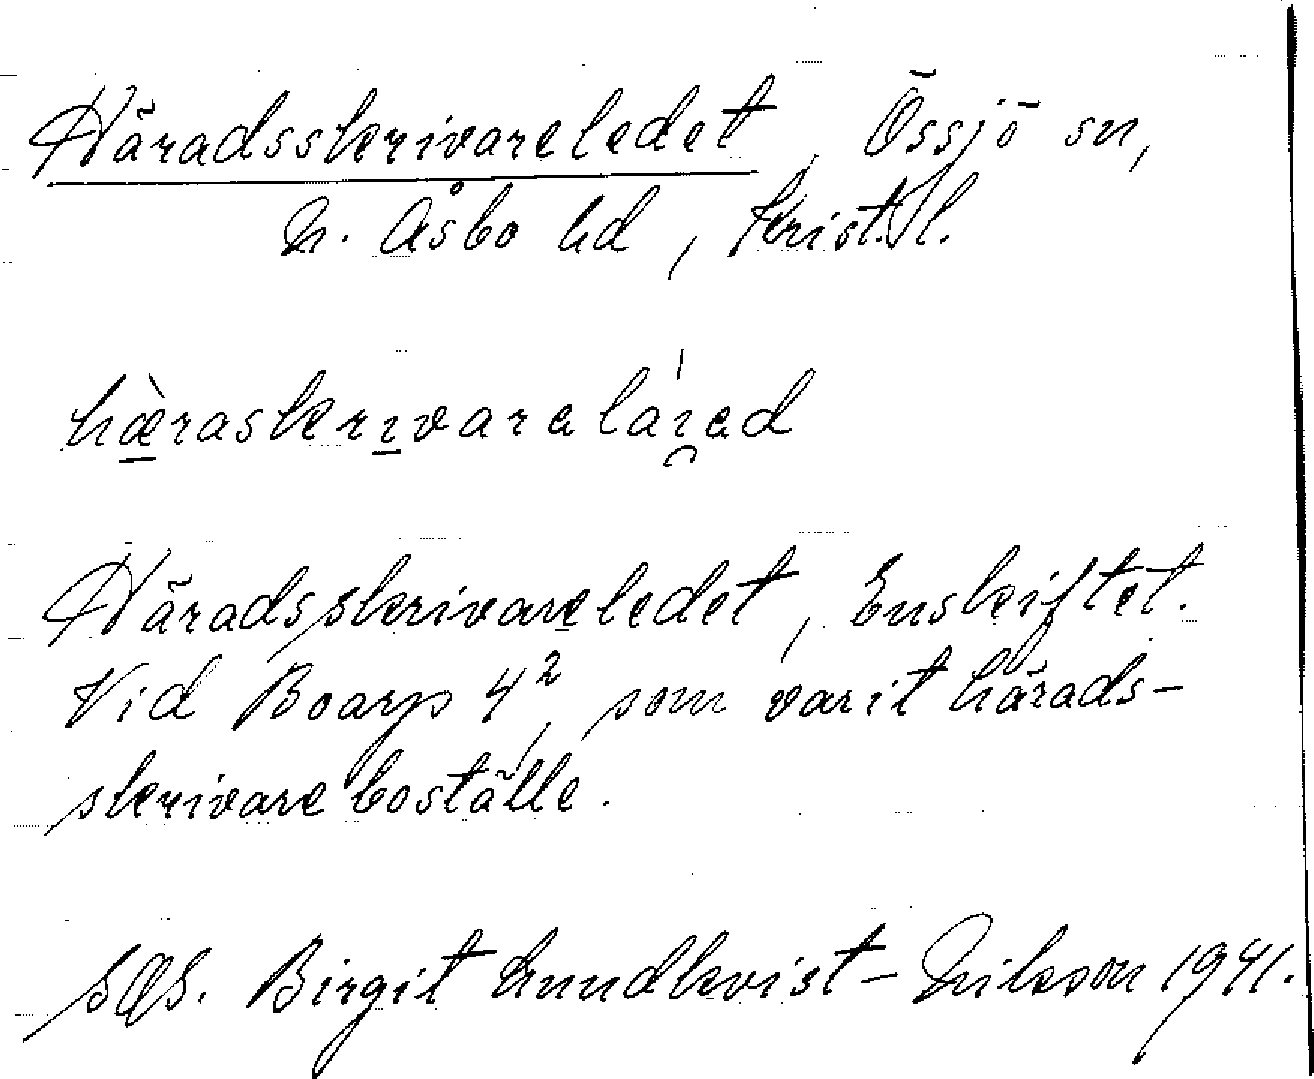 Häradsskrivareledet, Össjö sn,
N. Åsbo hd, Krist. l.
hæ̀raskrivarelái̯ed
Häradsskrivareledet, Enskiftet.
Vid Boarp 4², som varit härads-
skrivareboställe.
Birgit Lundkvist-Nilsson 1941.